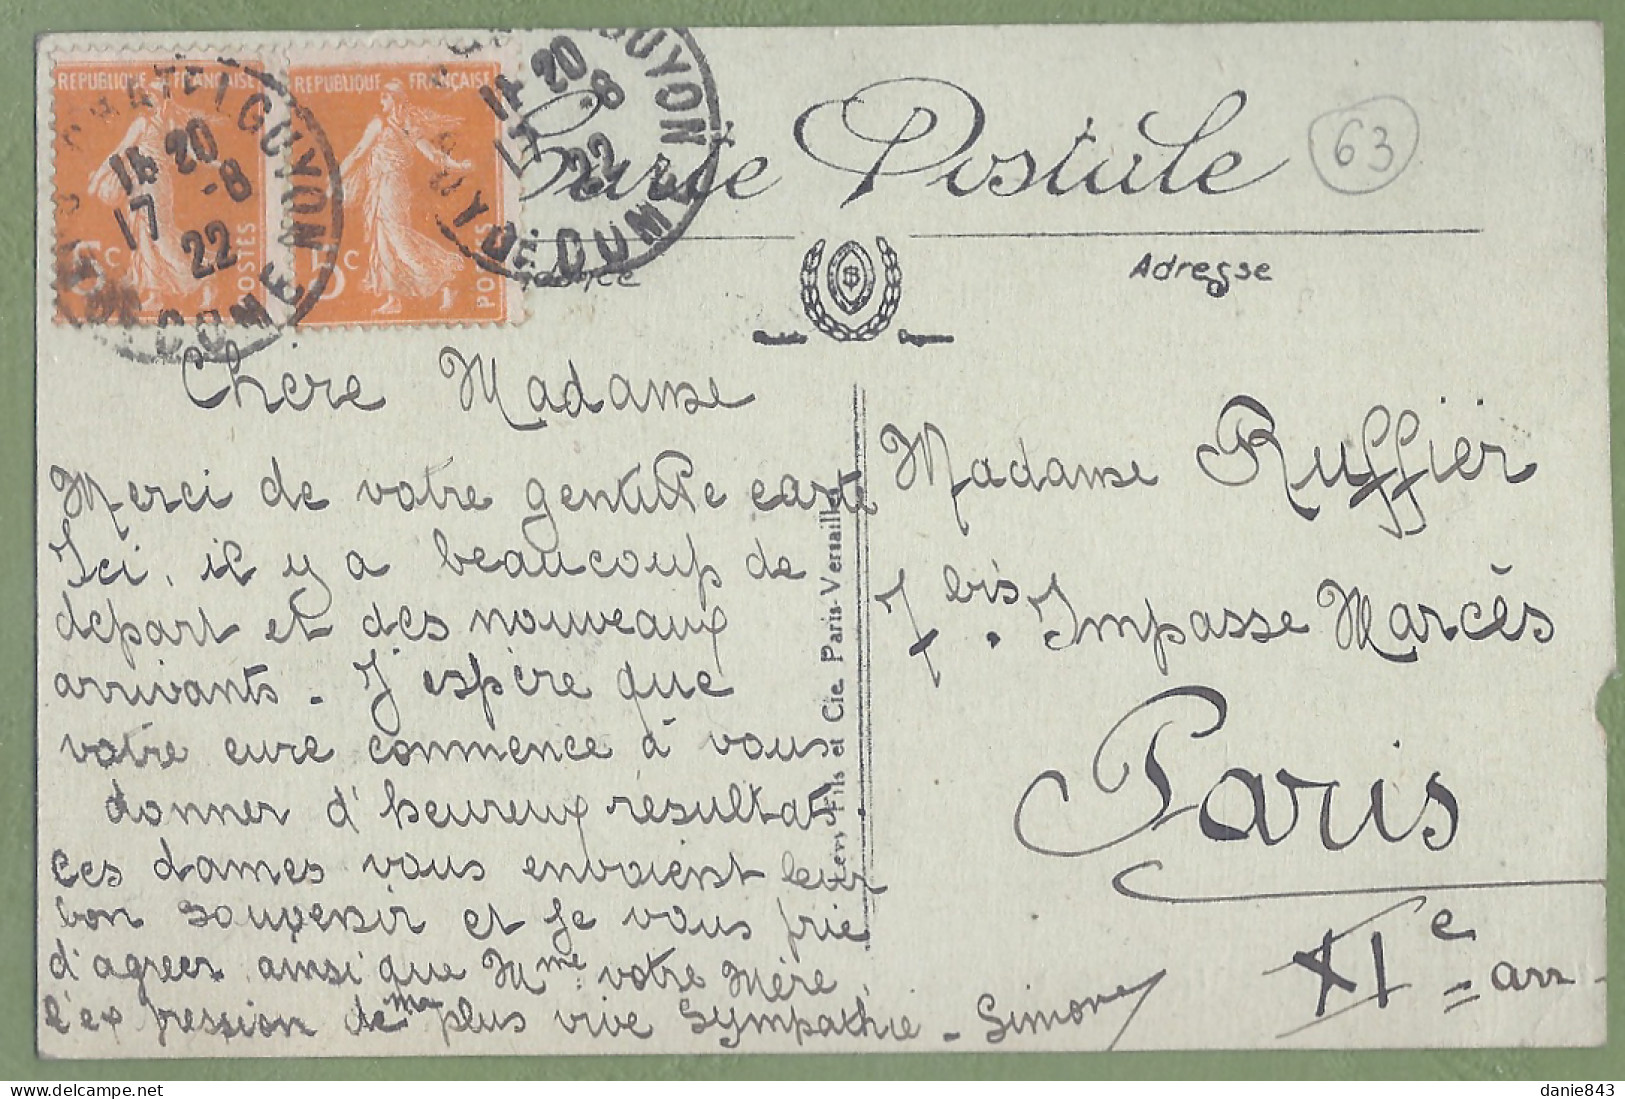 RÉPUBLIQUE FRANÇAISE
RÉPUBLIQUE FRANÇAISE
5c POSTES
5c POSTES
CHATELGUYON
14 20
17 -8
22
PUY DE DOME
GUYON
14 20
17 -8
22
PUY DE DOME
Carte Postale
63
Adresse
Chère Madame
Merci de votre gentille carte
Ici, il y a beaucoup de
départ et des nouveaux
arrivants. J'espère que
votre cure commence à vous
donner d'heureux résultat
Ces dames vous envoient leur
bon souvenir et je vous prie
d'agréer ainsi que Mme votre Mère,
l'expression de ma plus vive sympathie - Simone
Lévy Fils et Cie. Paris-Versailles
Madame Ruffier
7 bis. Impasse Marcès
Paris
XIe arr.
danie843